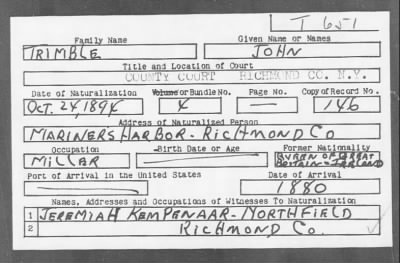 T 651
Family Name Given Name or Names
TRIMBLE JOHN
Title and Location of Court
COUNTY COURT RICHMOND CO. N.Y.
Date of Naturalization Volume or Bundle No. Page No. Copy of Record No.
OCT. 24, 1894 4 — 146
Address of Naturalized Person
MARINERS HARBOR - RICHMOND CO
Occupation Birth Date or Age Former Nationality
MILLER QUEEN OF GREAT
BRITAIN - IRELAND
Port of Arrival in the United States Date of Arrival
1880
Names, Addresses and Occupations of Witnesses To Naturalization
1 JEREMIAH KEMPENAAR - NORTHFIELD
2 RICHMOND CO.